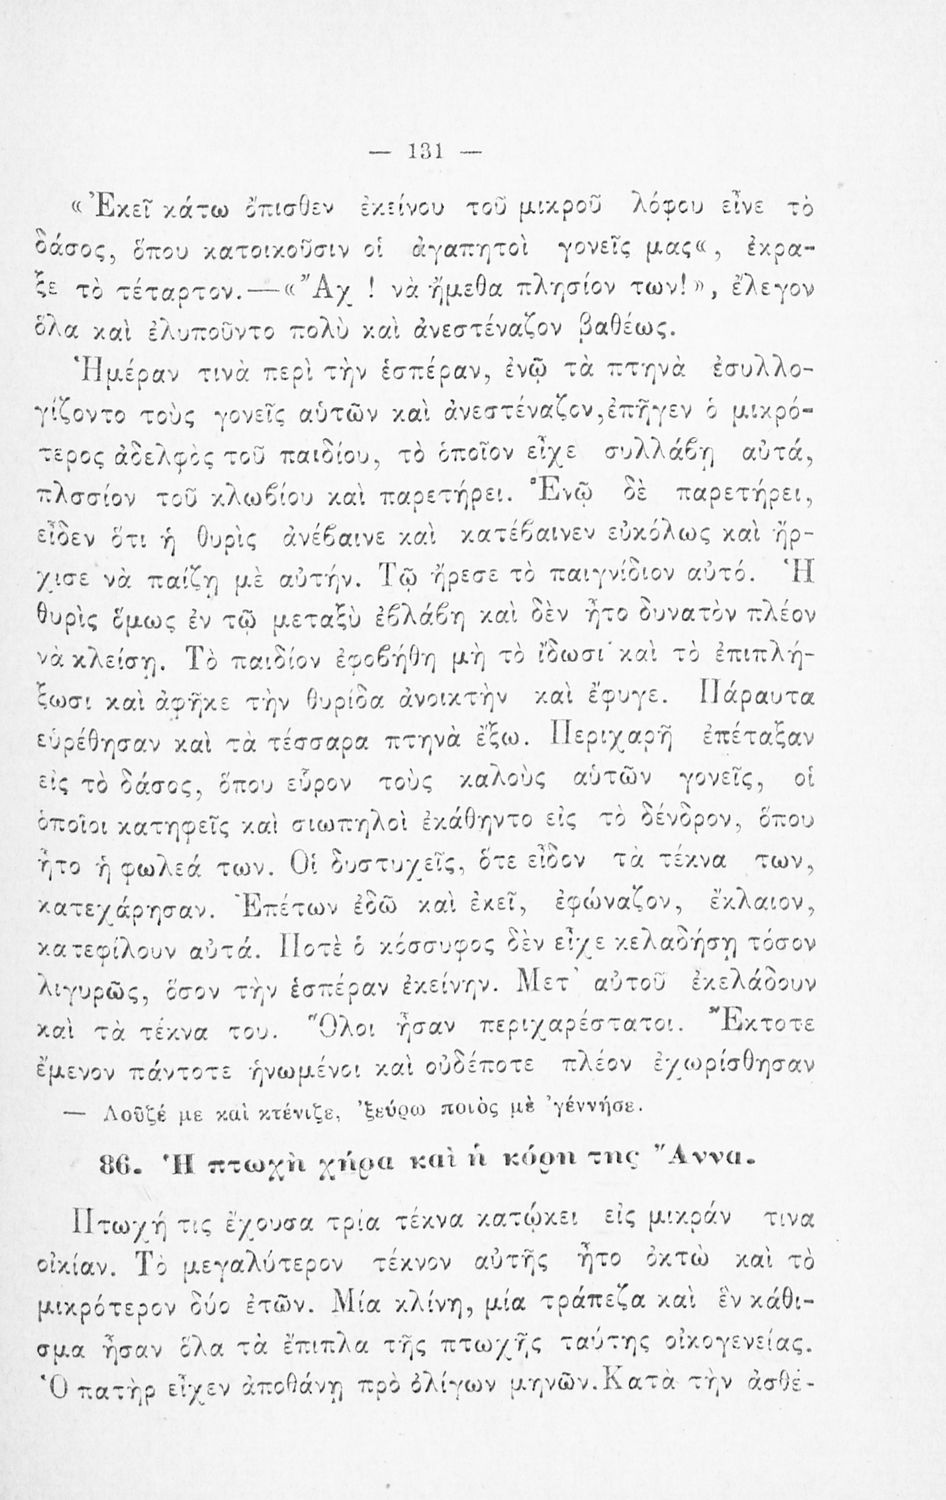 — 131 —
« Ἐκεῖ κάτω ὄπισθεν ἐκείνου τοῦ μικροῦ λόφου εἶνε τὸ
δάσος, ὅπου κατοικοῦσιν οἱ ἀγαπητοὶ γονεῖς μας«, ἔκρα-
ξε τὸ τέταρτον.—«Ἄχ ! νὰ ἤμεθα πλησίον των!», ἔλεγον
ὅλα καὶ ἐλυποῦντο πολὺ καὶ ἀνεστέναζον βαθέως.
Ἡμέραν τινὰ περὶ τὴν ἑσπέραν, ἐνῷ τὰ πτηνὰ ἐσυλλο-
γίζοντο τοὺς γονεῖς αὑτῶν καὶ ἀνεστέναζον,ἐπῆγεν ὁ μικρό-
τερος ἀδελφὸς τοῦ παιδίου, τὸ ὁποῖον εἶχε συλλάβῃ αὐτά,
πλσσίον τοῦ κλωβίου καὶ παρετήρει. Ἐνῷ δὲ παρετήρει,
εἶδεν ὅτι ἡ θυρὶς ἀνέβαινε καὶ κατέβαινεν εὐκόλως καὶ ἤρ-
χισε νὰ παίζῃ μὲ αὐτήν. Τῷ ἤρεσε τὸ παιγνίδιον αὐτό. Ἡ
θυρὶς ὅμως ἐν τῷ μεταξὺ ἐβλάβη καὶ δὲν ἦτο δυνατὸν πλέον
νὰ κλείσῃ. Τὸ παιδίον ἐφοβήθη μὴ τὸ ἴδωσι καὶ τὸ ἐπιπλή-
ξωσι καὶ ἀφῆκε τὴν θυρίδα ἀνοικτὴν καὶ ἔφυγε. Πάραυτα
εὑρέθησαν καὶ τὰ τέσσαρα πτηνὰ ἔξω. Περιχαρῆ ἐπέταξαν
εἰς τὸ δάσος, ὅπου εὗρον τοὺς καλοὺς αὑτῶν γονεῖς, οἱ
ὁποῖοι κατηφεῖς καὶ σιωπηλοὶ ἐκάθηντο εἰς τὸ δένδρον, ὅπου
ἦτο ἡ φωλεά των. Οἱ δυστυχεῖς, ὅτε εἶδον τὰ τέκνα των,
κατεχάρησαν. Ἐπέτων ἐδῶ καὶ ἐκεῖ, ἐφώναζον, ἔκλαιον,
κατεφίλουν αὐτά. Ποτὲ ὁ κόσσυφος δὲν εἶχε κελαδήσῃ τόσον
λιγυρῶς, ὅσον τὴν ἑσπέραν ἐκείνην. Μετ᾽ αὐτοῦ ἐκελάδουν
καὶ τὰ τέκνα του. Ὅλοι ἦσαν περιχαρέστατοι. Ἔκτοτε
ἔμενον πάντοτε ἡνωμένοι καὶ οὐδέποτε πλέον ἐχωρίσθησαν
— Λοῦζέ με καὶ κτένιζε, ᾽ξεύρω ποιὸς μὲ ᾽γέννήσε.
86. Ἡ πτωχὴ χήρα καὶ ἡ κόρη της Ἄννα.
Πτωχή τις ἔχουσα τρία τέκνα κατῴκει εἰς μικράν τινα
οἰκίαν. Τὸ μεγαλύτερον τέκνον αὐτῆς ἦτο ὀκτὼ καὶ τὸ
μικρότερον δύο ἐτῶν. Μία κλίνη, μία τράπεζα καὶ ἓν κάθι-
σμα ἦσαν ὅλα τὰ ἔπιπλα τῆς πτωχῆς ταύτης οἰκογενείας.
Ὁ πατὴρ εἶχεν ἀποθάνῃ πρὸ ὀλίγων μηνῶν.Κατὰ τὴν ἀσθέ-